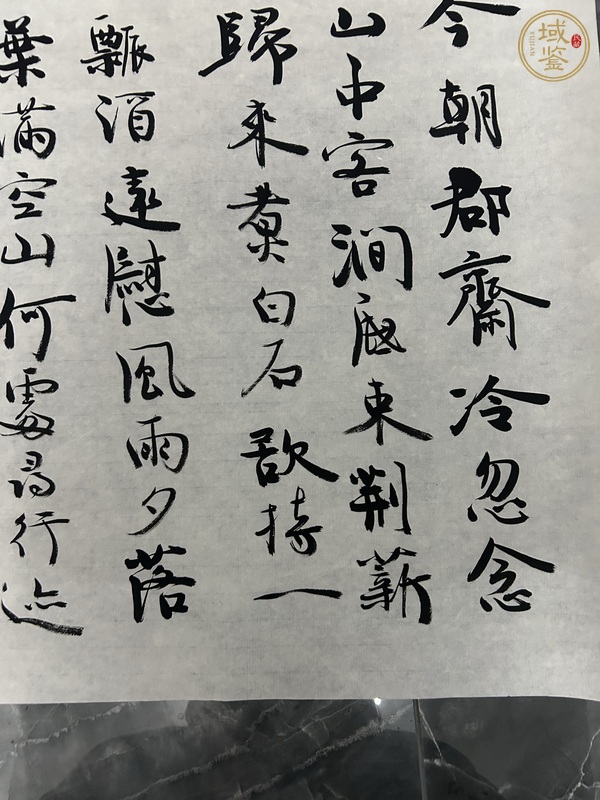 今朝郡齋冷忽念
山中客澗底束荆薪
歸來煮白石欲持一
瓢酒遠慰風雨夕落
葉滿空山何處尋行迹
域鑒